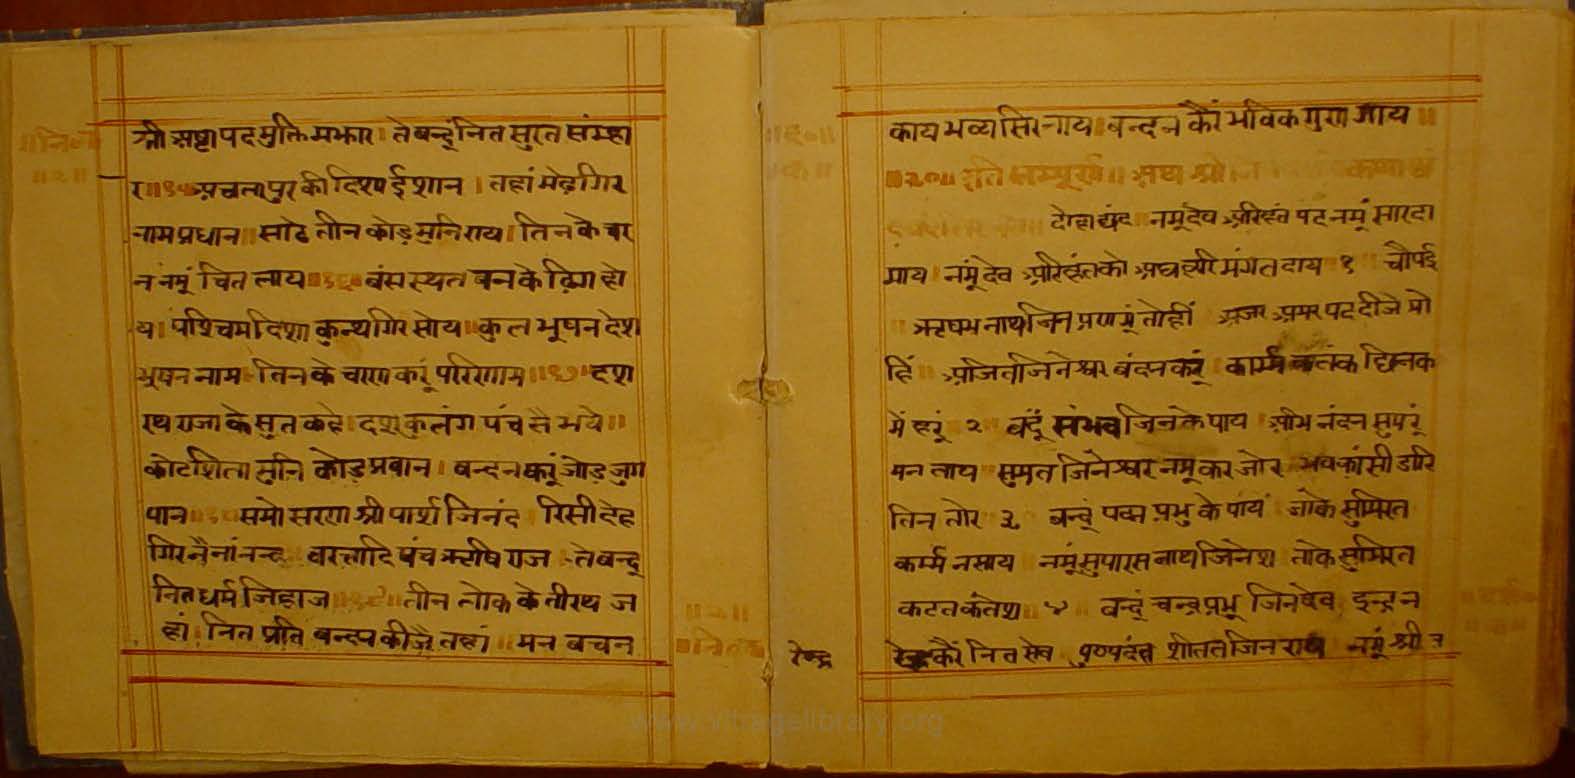 श्री अष्टापद मुक्ति मझार । ते बन्दूं नित सुरत संम्हा
र ॥१५॥ अचलापुर की दिशा ईशान । तहां मेढ़गिर
नाम प्रधान ॥ साढे तीन कोड़ मुनिराय । तिनके चर
न नमूं चित लाय ॥१६॥ बंसस्थल बन के ढ़िग हो
य । पश्चिम दिशा कुन्थगिर सोय ॥ कुल भूषन देश
भूषन नाम । तिनके चरण करूं परिणाम ॥१७॥ दश
रथ राजा के सुत कहे । दश कुलंग पंच सै भये ॥
कोटशिला मुनि कोड़ प्रवान । बन्दन करूं जोड़ जुग
पान ॥ समोसरण श्री पार्श जिनंद रिसीदेह
गिर नैनांनन्द बरत्तादि पंच ऋषिराज ते बन्दू
नित धर्म जिहाज ॥१९॥ तीन लोक के तीरथ ज
हां । नित प्रति बन्दन कीजै तहां ॥ मन बचन
॥ नि॰
॥२॥
काय भव्य सिरनाय । बन्दन करैं भविक गुण गाय ॥
॥२०॥ इति सम्पूर्ण ॥ अथ श्री
दोहा छंद नमूं देव अरिहंत पद नमूं सारदा
माय नमूं देव अरिहंत को अघ हारी मंगल दाय १ चौपई
ऋषभनाथ जिन प्रणमूं तोहीं अजर अमर पद दीजै मो
हिं अजित जिनेश्वर बंदन करूं कार्म्म कलंक छिनक
में हरूं २ बंदूं संभव जिनके पाय
मन लाय सुमत जिनेश्वर नमूं कर जोर भव फांसी डारि
तिन तोर ३ बन्दूं पदम प्रभु के पाय जाके सुमिरत
कर्म्म नसाय नमूं सुपारसनाथ जिनेश ताके सुमिरत
कटत कलेश ४ बन्दूं चन्द्रप्रभू जिनदेव इन्द्र न
रेन्द्र करैं नित सेव पुष्पदंत शीतल जिन राय नमूं श्री
रेन्द्र
www.vitragelibrary.org